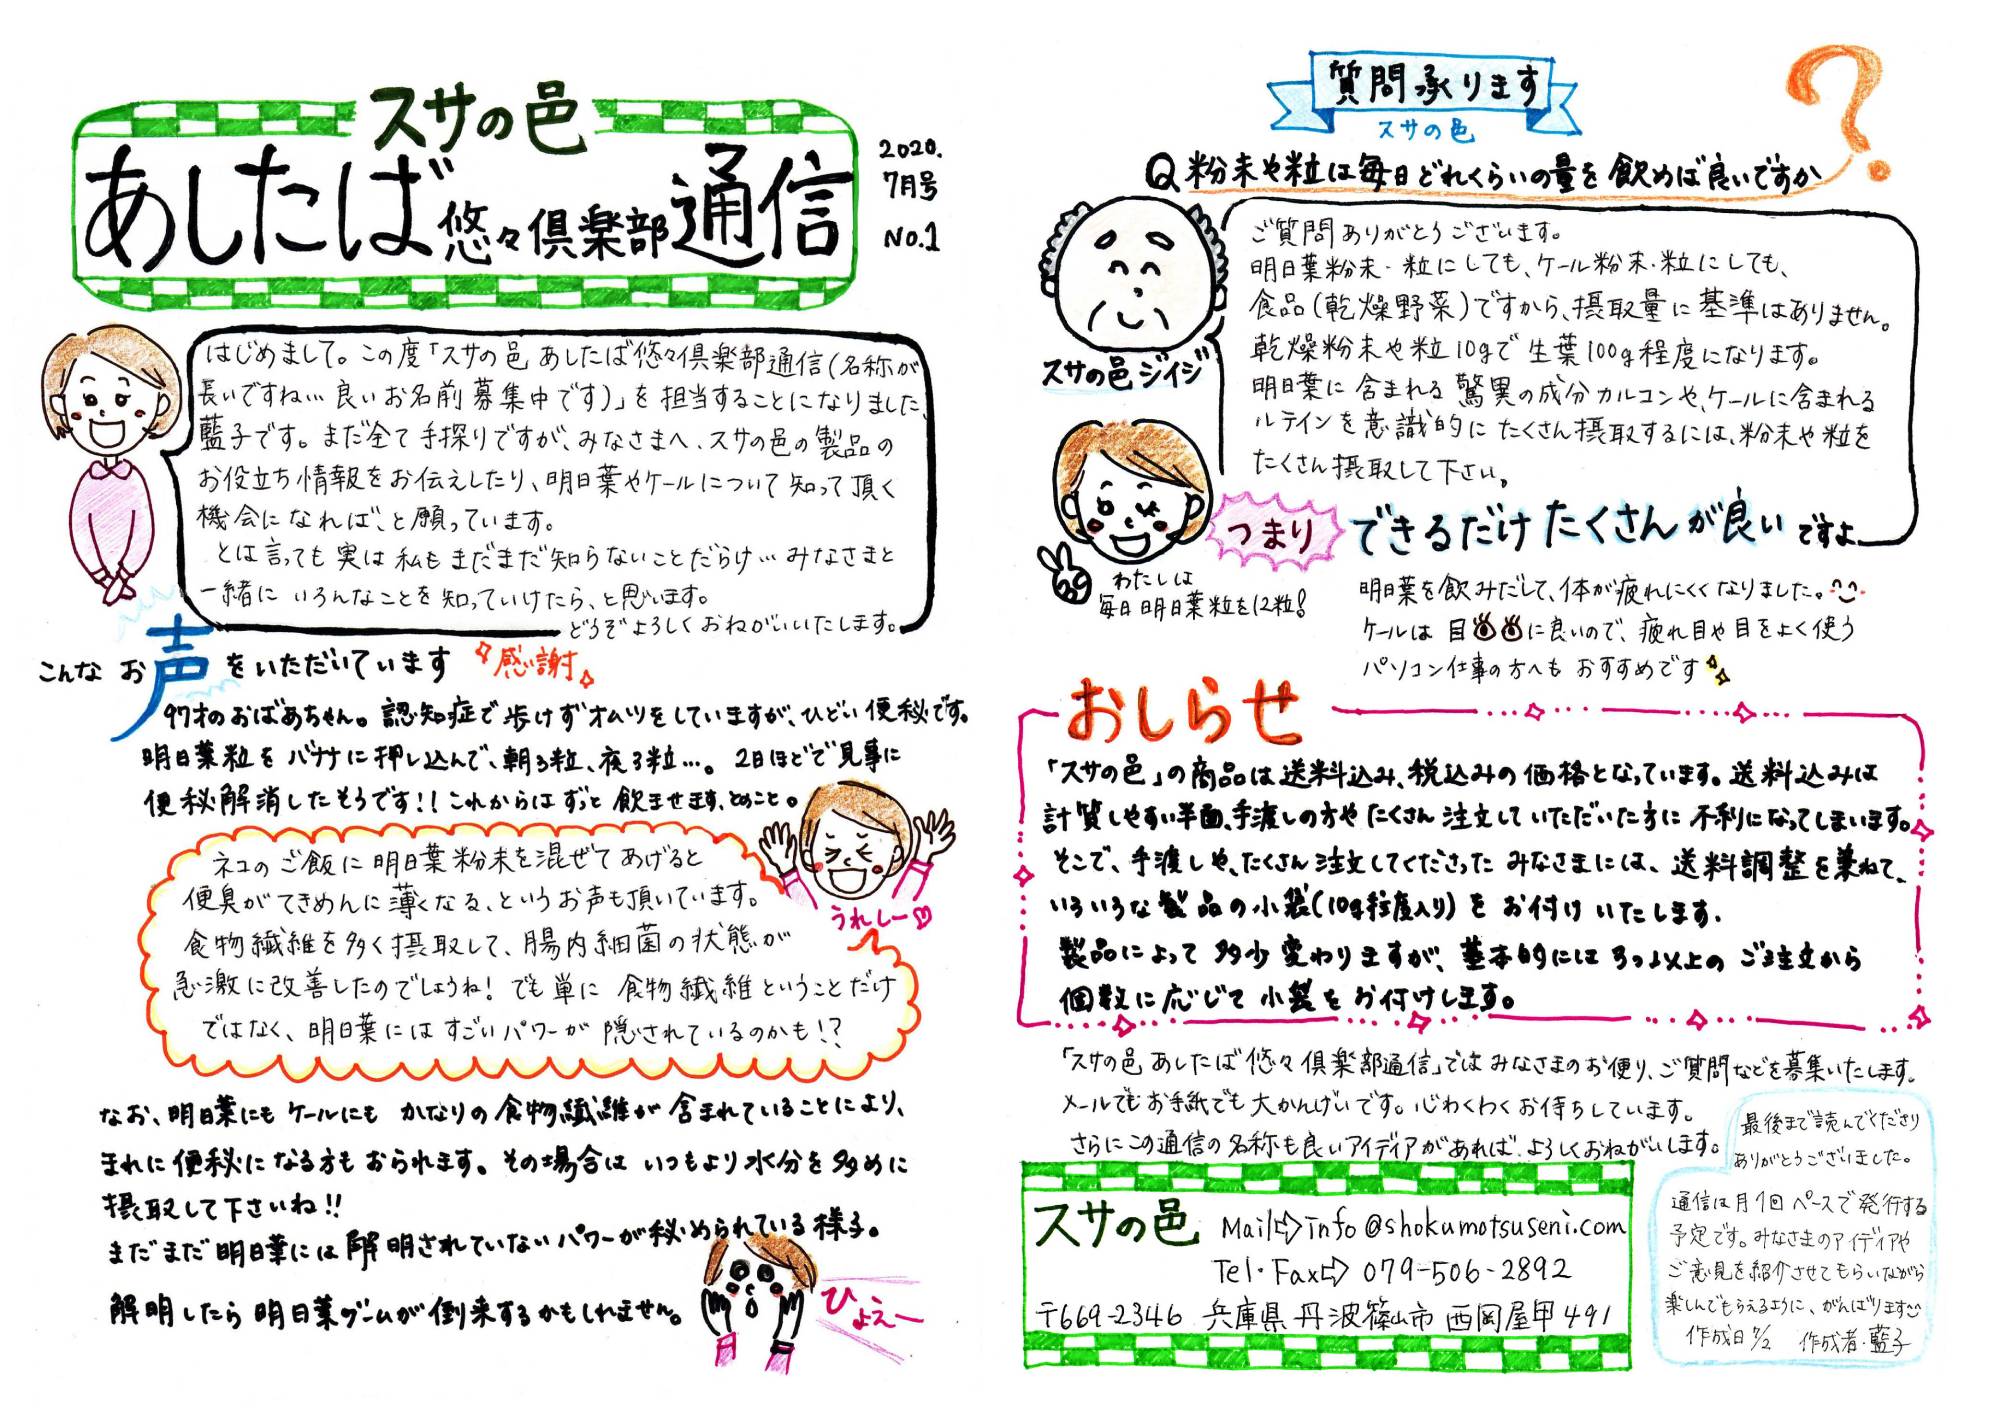 スサの邑
あしたば悠々倶楽部通信
2020.
7月号
No.1
はじめまして。この度「スサの邑 あしたば悠々倶楽部通信(名称が
長いですね…良いお名前募集中です)」を担当することになりました、
藍子です。まだ全て手探りですが、みなさまへ、スサの邑の製品の
お役立ち情報をお伝えしたり、明日葉やケールについて知って頂く
機会になれば、と願っています。
とは言っても実は私もまだまだ知らないことだらけ…みなさまと
一緒に いろんなことを知っていけたら、と思います。
どうぞよろしくおねがいいたします。
こんな お声をいただいています 感謝
97才のおばあちゃん。認知症で歩けずオムツをしていますが、ひどい便秘です。
明日葉粒をバナナに押し込んで、朝3粒、夜3粒…。2日ほどで見事に
便秘解消したそうです!!これからはずっと飲ませます、とのこと。
ネコのご飯に明日葉粉末を混ぜてあげると
便臭がてきめんに薄くなる、というお声も頂いています。
食物繊維を多く摂取して、腸内細菌の状態が
急激に改善したのでしょうね!でも単に食物繊維ということだけ
ではなく、明日葉にはすごいパワーが隠されているのかも!?
うれしー♡
なお、明日葉にもケールにもかなりの食物繊維が含まれていることにより、
まれに便秘になる方もおられます。その場合はいつもより水分を多めに
摂取して下さいね!!
まだまだ明日葉には解明されていないパワーが秘められている様子。
解明したら明日葉ブームが到来するかもしれません。
ひょえー
質問承ります
スサの邑
?
Q粉末や粒は毎日どれくらいの量を飲めば良いですか
ご質問ありがとうございます。
明日葉粉末・粒にしても、ケール粉末・粒にしても、
食品(乾燥野菜)ですから、摂取量に基準はありません。
乾燥粉末や粒10gで生葉100g程度になります。
明日葉に含まれる驚異の成分カルコンや、ケールに含まれる
ルテインを意識的にたくさん摂取するには、粉末や粒を
たくさん摂取して下さい。
スサの邑ジイジ
つまり できるだけたくさんが良いですよ
わたしは
毎日明日葉粒を12粒!
明日葉を飲みだして、体が疲れにくくなりました。
ケールは目に良いので、疲れ目や目をよく使う
パソコン仕事の方へもおすすめです
おしらせ
「スサの邑」の商品は送料込み、税込みの価格となっています。送料込みは
計算しやすい半面、手渡しの方やたくさん注文していただいた方に不利になってしまいます。
そこで、手渡しや、たくさん注文してくださったみなさまには、送料調整を兼ねて、
いろいろな製品の小袋(10g程度入り)をお付けいたします.
製品によって多少変わりますが、基本的には3つ以上のご注文から
個数に応じて小袋をお付けします。
「スサの邑 あしたば悠々倶楽部通信」ではみなさまのお便り、ご質問などを募集いたします。
メールでもお手紙でも大かんげいです。心わくわくお待ちしています。
さらにこの通信の名称も良いアイディアがあれば、よろしくおねがいします。
スサの邑 Mail⇨info@shokumotsuseni.com
Tel・Fax⇨079-506-2892
〒669-2346 兵庫県丹波篠山市西岡屋甲491
最後まで読んでくださり
ありがとうございました。
通信は月1回ペースで発行する
予定です。みなさまのアイディアや
ご意見を紹介させてもらいながら
楽しんでもらえるように、がんばります
作成日7/2 作成者・藍子